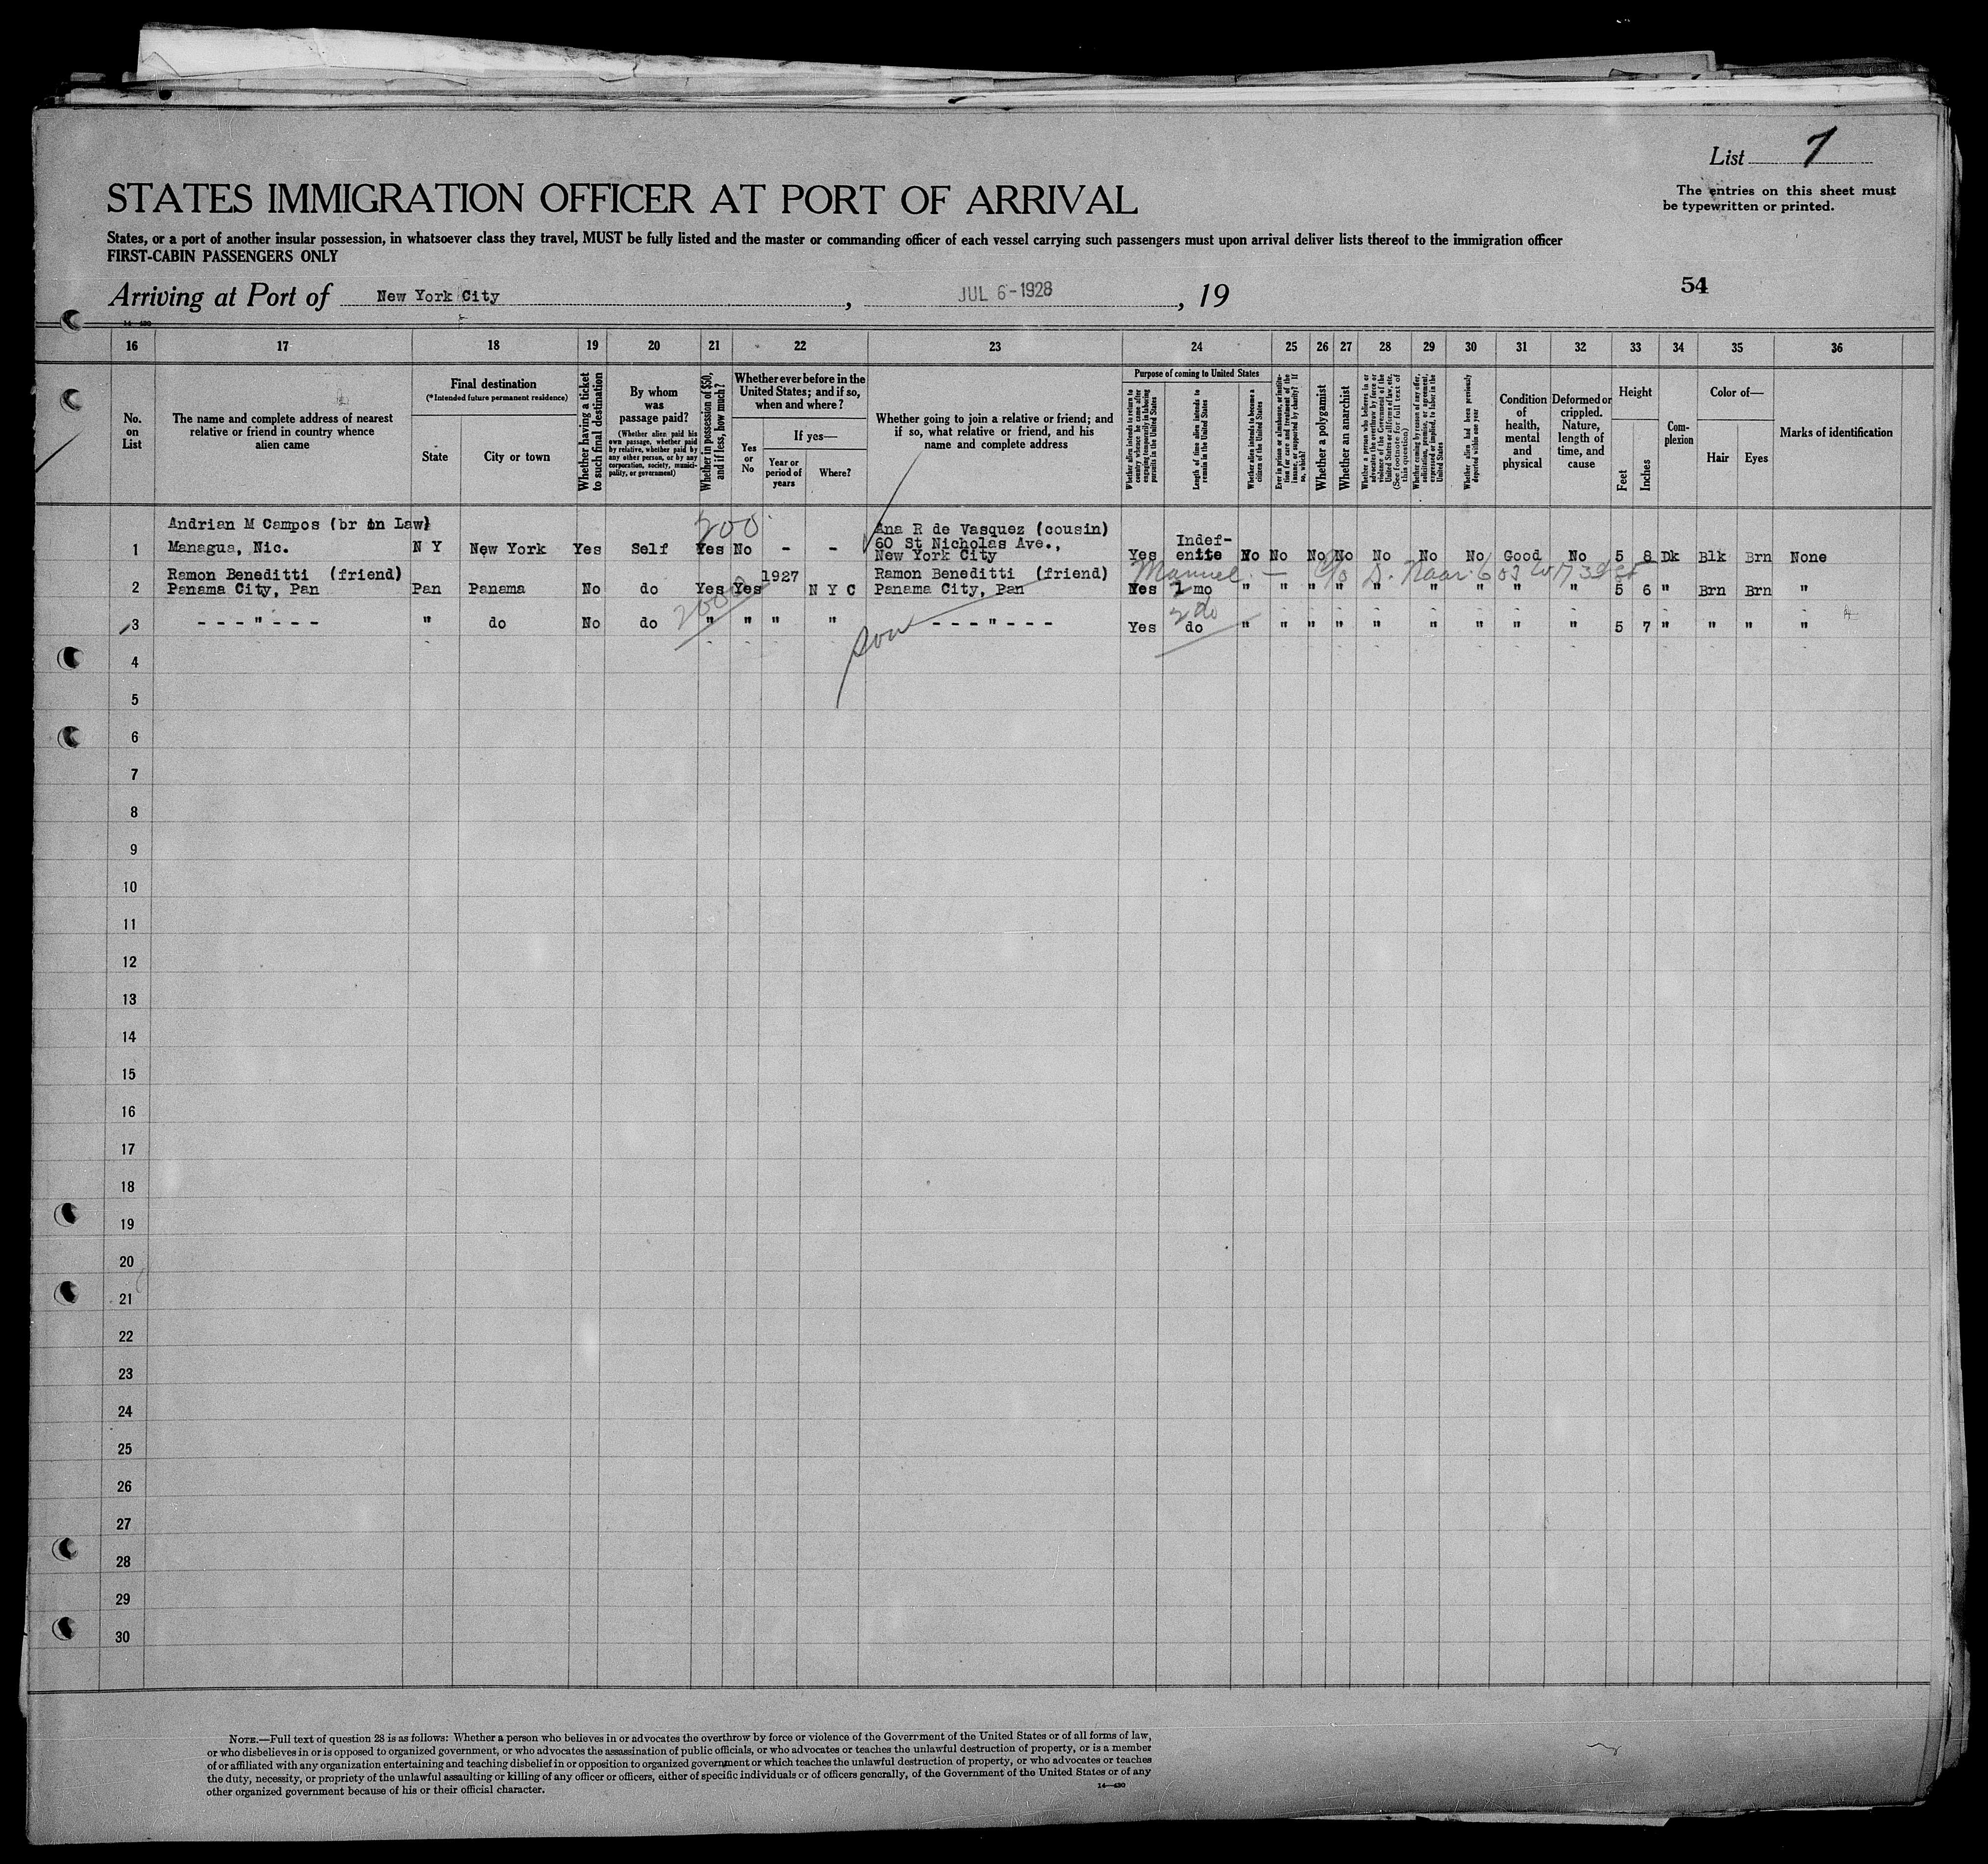 List 7
STATES IMMIGRATION OFFICER AT PORT OF ARRIVAL
The entries on this sheet must
be typewritten or printed.
States, or a port of another insular possession, in whatsoever class they travel, MUST be fully listed and the master or commanding officer of each vessel carrying such passengers must upon arrival deliver lists thereof to the immigration officer
FIRST-CABIN PASSENGERS ONLY
Arriving at Port of New York City, JUL 6-1928, 19
54
14—430
16 17 18 19 20 21 22 23 24 25 26 27 28 29 30 31 32 33 34 35 36
No. on List
The name and complete address of nearest relative or friend in country whence alien came
Final destination
(*Intended future permanent residence)
State
City or town
Whether having a ticket to such final destination
By whom was passage paid?
(Whether alien paid his own passage, whether paid by relative, whether paid by any other person, or by any corporation, society, municipality, or government)
Whether in possession of $50, and if less, how much?
Whether ever before in the United States; and if so, when and where?
Yes or No
If yes—
Year or period of years
Where?
Whether going to join a relative or friend; and if so, what relative or friend, and his name and complete address
Purpose of coming to United States
Whether alien intends to return to country whence he came after engaging temporarily in laboring pursuits in the United States
Length of time alien intends to remain in the United States
Whether alien intends to become a citizen of the United States
Ever in prison or almshouse, or institution for care and treatment of the insane, or supported by charity? If so, which?
Whether a polygamist
Whether an anarchist
Whether a person who believes in or advocates the overthrow by force or violence of the Government of the United States or all forms of law, etc. (See footnote for full text of this question)
Whether coming by reason of any offer, solicitation, promise, or agreement, expressed or implied, to labor in the United States
Whether alien had been previously deported within one year
Condition of health, mental and physical
Deformed or crippled. Nature, length of time, and cause
Height
Feet
Inches
Complexion
Color of—
Hair
Eyes
Marks of identification
Andrian M Campos (br in Law) 200 Ana R de Vasquez (cousin)
60 St Nicholas Ave., Indef-
1 Managua, Nic. N Y New York Yes Self Yes No - - New York City Yes enite No No No No No No No Good No 5 8 Dk Blk Brn None
Ramon Beneditti (friend) 1927 Ramon Beneditti (friend) Manuel — c/o D. Naar 603 W 173d St
2 Panama City, Pan Pan Panama No do Yes Yes N Y C Panama City, Pan Yes 2 mo " " " " " " " " " 5 6 " Brn Brn "
200 2 do
3 - - - " - - - " do No do " " " " son - - - " - - - Yes do " " " " " " " " " 5 7 " " " "
4
5
6
7
8
9
10
11
12
13
14
15
16
17
18
19
20
21
22
23
24
25
26
27
28
29
30
NOTE.—Full text of question 28 is as follows: Whether a person who believes in or advocates the overthrow by force or violence of the Government of the United States or of all forms of law,
or who disbelieves in or is opposed to organized government, or who advocates the assassination of public officials, or who advocates or teaches the unlawful destruction of property, or is a member
of or affiliated with any organization entertaining and teaching disbelief in or opposition to organized government or which teaches the unlawful destruction of property, or who advocates or teaches
the duty, necessity, or propriety of the unlawful assaulting or killing of any officer or officers, either of specific individuals or of officers generally, of the Government of the United States or of any
other organized government because of his or their official character.
14—430